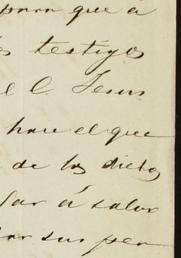 para que á
testigos
el C. Jesus
hace el que
de los dichos
á salvo
sus per